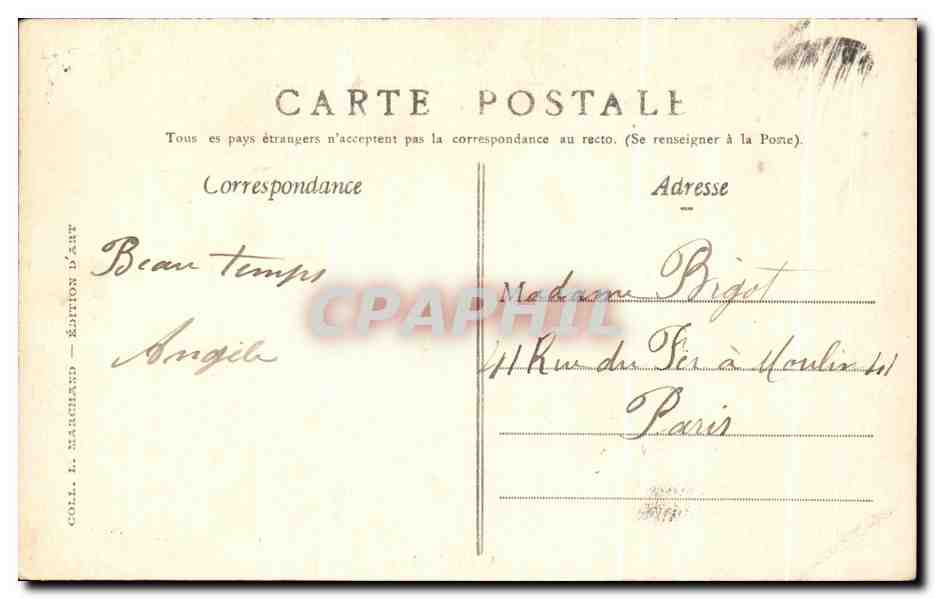 CARTE POSTALE
Tous es pays étrangers n'acceptent pas la correspondance au recto. (Se renseigner à la Poste).
Correspondance
Adresse
COLL. L. MARCHAND — ÉDITION D'ART
Beau temps
Angèle
Madame Bigot
41 Rue du Fer à Moulin 41
Paris
CPAPHIL